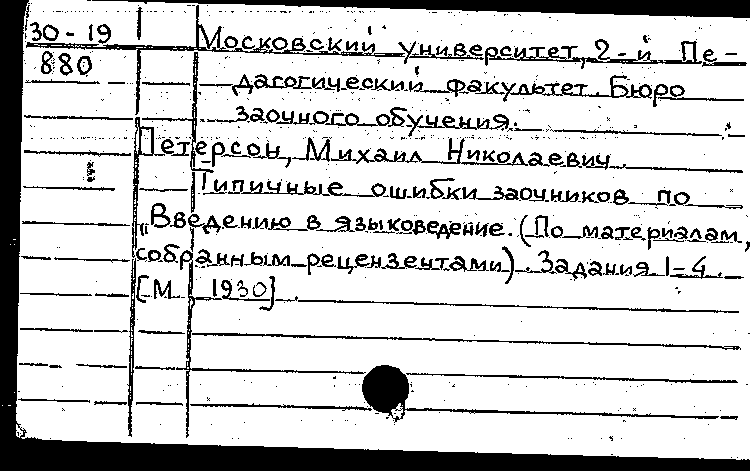 30-19 Московский университет, 2-й Пе-
880 дагогический факультет. Бюро
заочного обучения.
Петерсон, Михаил Николаевич.
Типичные ошибки заочников по
„Введению в языковедение. (По материалам,
собранным рецензентами). Задания 1-4.
[М., 1930].